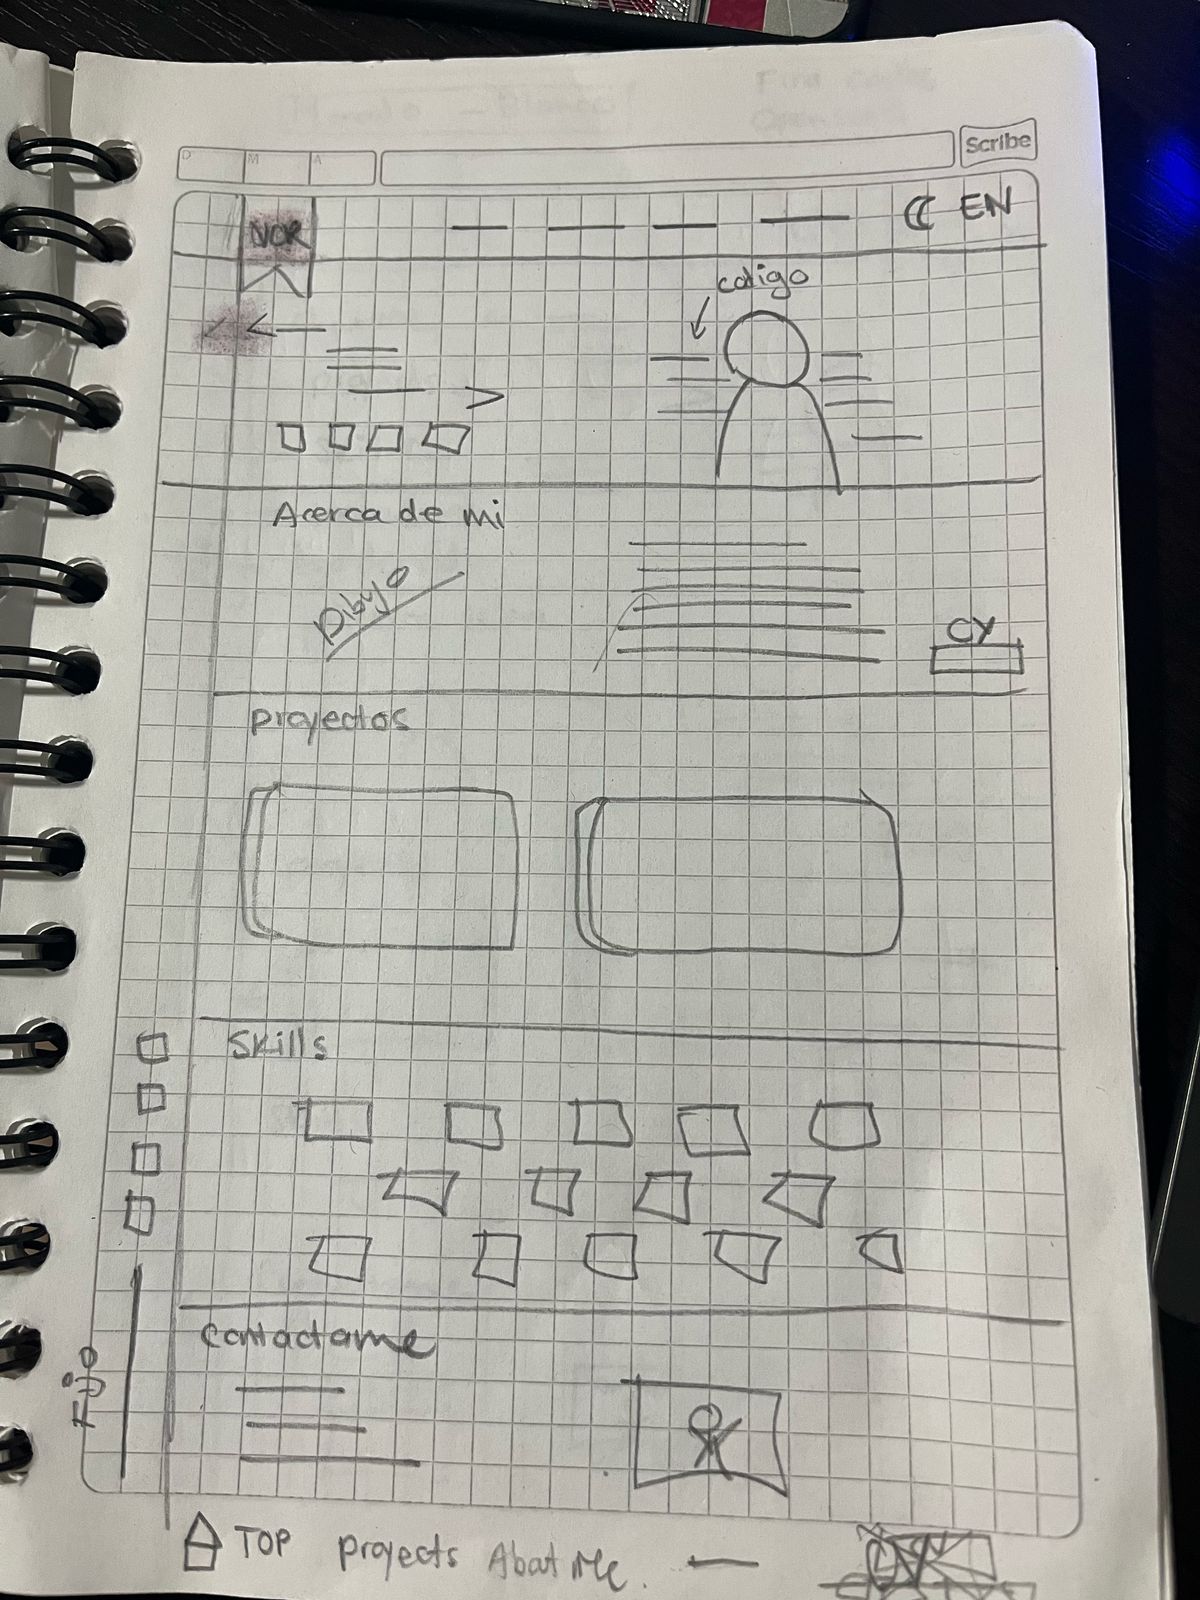 Scribe
D M A
NOR EN
codigo
Acerca de mi
Dibujo
CV
Proyectos
Skills
Contactame
Fijo
TOP Proyects About Me